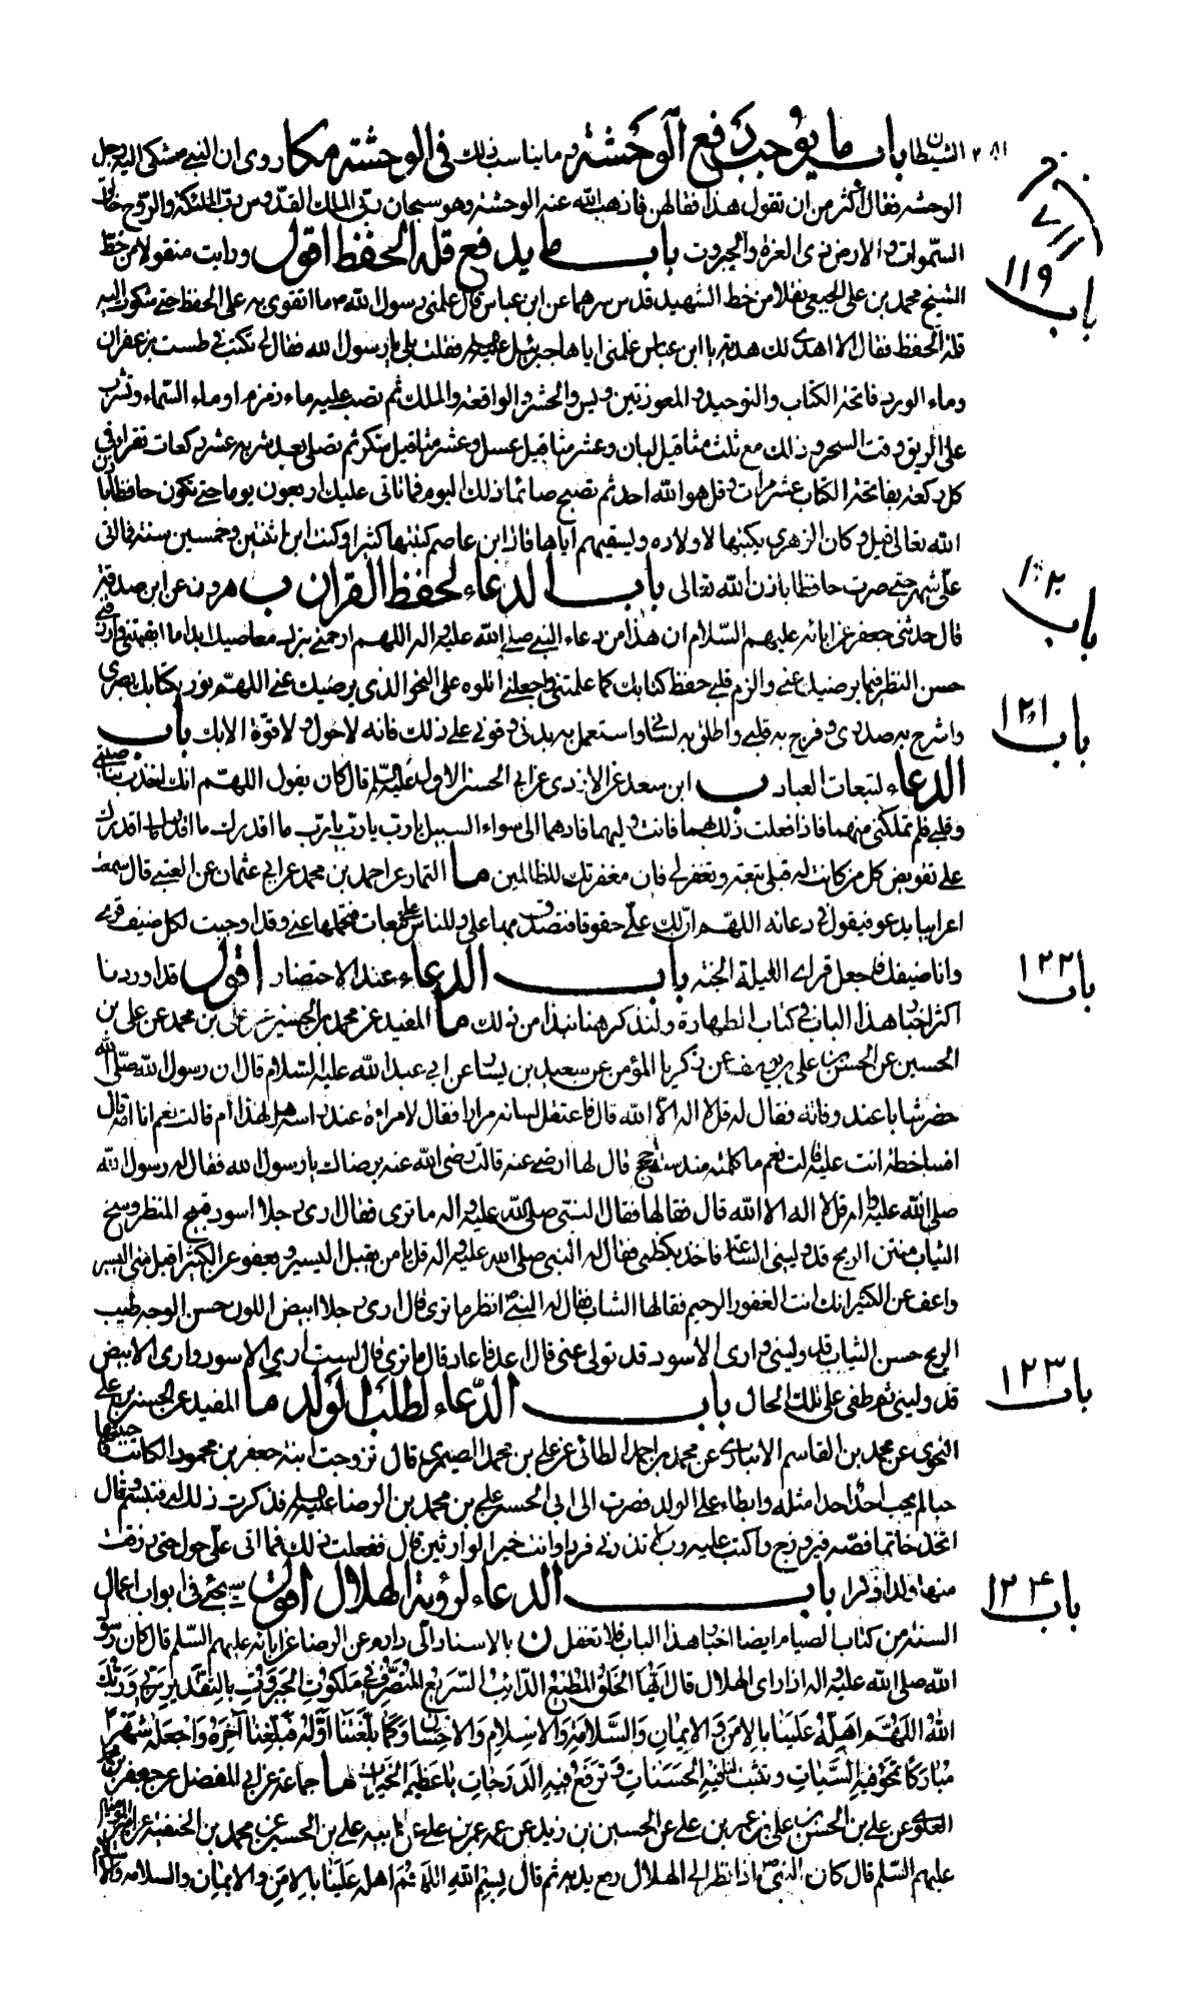 الشيطان باب ما يوجب دفع الوحشة وما يناسب ذلك في الوحشة مكا روى ان النبي ص شكى اليه رجل
الوحشه فقال اكثر من ان تقول هذا فقالهن فاذهب الله عنه الوحشة وهو سبحان ربي الملك القدوس رب الملئكة والروح خالق
السموات والارض ذى العزة والجبروت باب ما يدفع قلة الحفظ اقول ودايت منقولا من خط
الشيخ محمد بن على الجبعى نقلا من خط الشهيد قدس سرهما عن ابن عباس قال علمنى رسول الله ص ما اتقوى به على الحفظ حتى شكوت اليه
قلة الحفظ فقال الا اهدى لك هدية يا ابن عباس علمنى اياها جبرئيل عليه السلم فقلت بلى يا رسول الله فقال لى تكتب في طست بزعفران
وماء الورد فاتحة الكتاب والتوحيد والمعوذتين ويس والحشر والواقعة والملك ثم تصب عليه ماء زمزم او ماء السماء وتشرب
على الريق وقت السحر وذلك مع ثلث مثاقيل لبان وعشر مثاقيل عسل وعشر مثاقيل سكر ثم تصلى بعد شربه عشر ركعات تقرا في
كل ركعة بفاتحة الكتاب عشر مرات وقل هو الله احد ثم تصبح صائما ذلك اليوم فما تاتى عليك اربعون يوما حتى تكون حافظا باذن
الله تعالى قيل وكان الزهري يكتبها لاولاده ويسقيهم اياها قال ابن عاصم كتبتها كثيرا وكنت ابن اثنتين وخمسين سنة فما اتى
على شهر حتى صرت حافظا باذن الله تعالى باب الدعاء لحفظ القران ب هرون عن ابن صدقة
قال حدثنى جعفر عن ابائه عليهم السلام ان هذا من دعاء النبي صلى الله عليه واله اللهم ارحمني بترك معاصيك ابدا ما ابقيتنى وارزقني
حسن النظر فيما يرضيك عني والزم قلبي حفظ كتابك كما علمتني واجعلنى اتلوه على النحو الذى يرضيك عني اللهم نور بكتابك بصرى
واشرح به صدرى وفرح به قلبي واطلق به لسانى واستعمل به بدنى وقونى على ذلك فانه لا حول ولا قوة الا بك باب
الدعاء لتبعات العباد ب ابن سعد عن الازدى عن ابي الحسن الاول عليه السلم قال كان يقول اللهم انك اخذت بناصيتي
وقلبي فلم تملكنى منهما فاذا فعلت ذلك بهما فانت وليهما فاهدهما الى سواء السبيل يا رب يا رب يا رب ما اقدرك ما اقدرك
على تفويض كل من كانت له قبلى تبعة وتغفر لى فان مغفرتك للظالمين ما التمار عن احمد بن محمد عن ابي عثمان عن العتبى قال سمعت
اعرابيا يدعو فيقول فى دعائه اللهم ان لك على حقوقا فتصدق بها على وللناس على تبعات فتحملها عني وقد اوجبت لكل ضيف قرى
وانا ضيفك فاجعل قراى الليلة الجنة باب الدعاء عند الاحتضار اقول قد اوردنا
اكثر اخبار هذا الباب فى كتاب الطهارة ولنذكر هنا نبذا من ذلك ما المفيد عن محمد بن الحسين عن على بن محمد عن على بن
الحسين عن الحسن بن على بن يوسف عن زكريا المؤمن عن سعيد بن يسار عن ابى عبد الله عليه السلام قال ان رسول الله صلى الله
حضر شابا عند وفاته فقال له قل لا اله الا الله قال فاعتقل لسانه مرارا فقال لامراة عند راسه هل لهذا ام قالت نعم انا امه قال
افساخطة انت عليه قالت نعم ما كلمته منذ ست حجج قال لها ارضى عنه قالت رضى الله عنه برضاك يا رسول الله فقال له رسول الله
صلى الله عليه واله قل لا اله الا الله قال فقالها فقال النبي صلى الله عليه واله ما ترى فقال ارى رجلا اسود قبيح المنظر وسخ
الثياب منتن الريح قد ولينى الساعة فاخذ بكظمى فقال له النبي صلى الله عليه واله قل يا من يقبل اليسير ويعفو عن الكثير اقبل منى اليسير
واعف عن الكثير انك انت الغفور الرحيم فقالها الشاب فقال له النبي ص انظر ما ترى قال ارى رجلا ابيض اللون حسن الوجه طيب
الريح حسن الثياب قد ولينى وارى الاسود قد تولى عنى قال اعد فاعاد قال ما ترى قال لست ارى الاسود وارى الابيض
قد ولينى ثم طفى على تلك الحال باب الدعاء لطلب الولد ما المفيد عن الحسن بن على
النحوى عن محمد بن القاسم الانبارى عن محمد بن احمد الطائى عن على بن محمد الصيمرى قال تزوجت ابنة جعفر بن محمود الكاتب فاحببتها
حبا لم يحب احد احدا مثله وابطاء على الولد فصرت الى ابى الحسن على بن محمد بن الرضا عليهم السلم فذكرت ذلك له فتبسم وقال
اتخذ خاتما فصه فيروزج واكتب عليه رب لا تذرنى فردا وانت خير الوارثين قال ففعلت ذلك فما اتى على حول حتى رزقت
منها ولدا ذكرا باب الدعاء لرؤية الهلال اقول سيجئ فى ابواب اعمال
السنة من كتاب الصيام ايضا اخبار هذا الباب فلا تغفل ن بالاسناد الى دارم عن الرضا عن ابائه عليهم السلم قال كان رسول
الله صلى الله عليه واله اذا راى الهلال قال ايها الخلق المطيع الدائب السريع المتصرف فى ملكوت الجبروت بالتقدير ربى وربك
الله اللهم اهله علينا بالامن والايمان والسلامة والاسلام والاحسان وكما بلغتنا اوله فبلغنا اخره واجعله شهرا
مباركا تمحو فيه السيئات وتثبت لنا فيه الحسنات وترفع فيه الدرجات يا عظيم الخيرات ما جماعة عن ابى المفضل عن جعفر بن محمد
العلوى عن على بن الحسن بن على بن عمر بن على عن الحسين بن زيد عن عمه عمر بن على عن ابيه على بن الحسين عن محمد بن الحنفية عن امير المؤمنين
عليهم السلم قال كان النبي ص اذا نظر الى الهلال رفع يديه ثم قال بسم الله اللهم اهله علينا بالامن والايمان والسلامة والاسلام
باب ١١٩
باب ١٢٠
باب ١٢١
باب ١٢٢
باب ١٢٣
باب ١٢٤